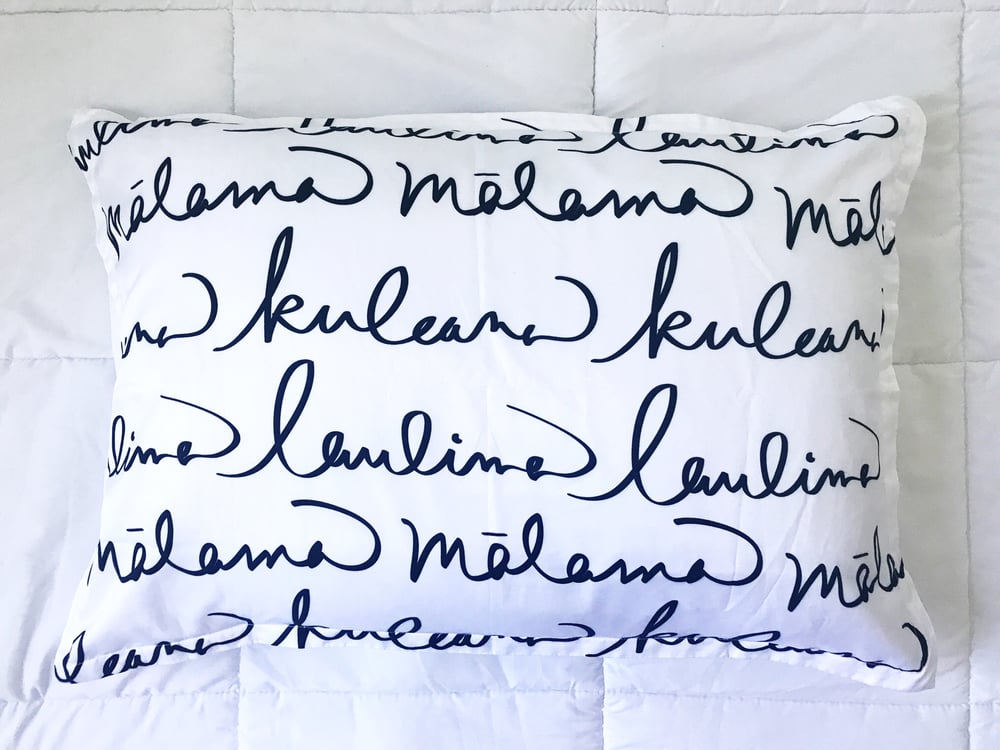 laulima laulima
mālama mālama māl
na kuleana kulean
lima laulima laulima
mālama mālama māla
eana kuleana kuleana